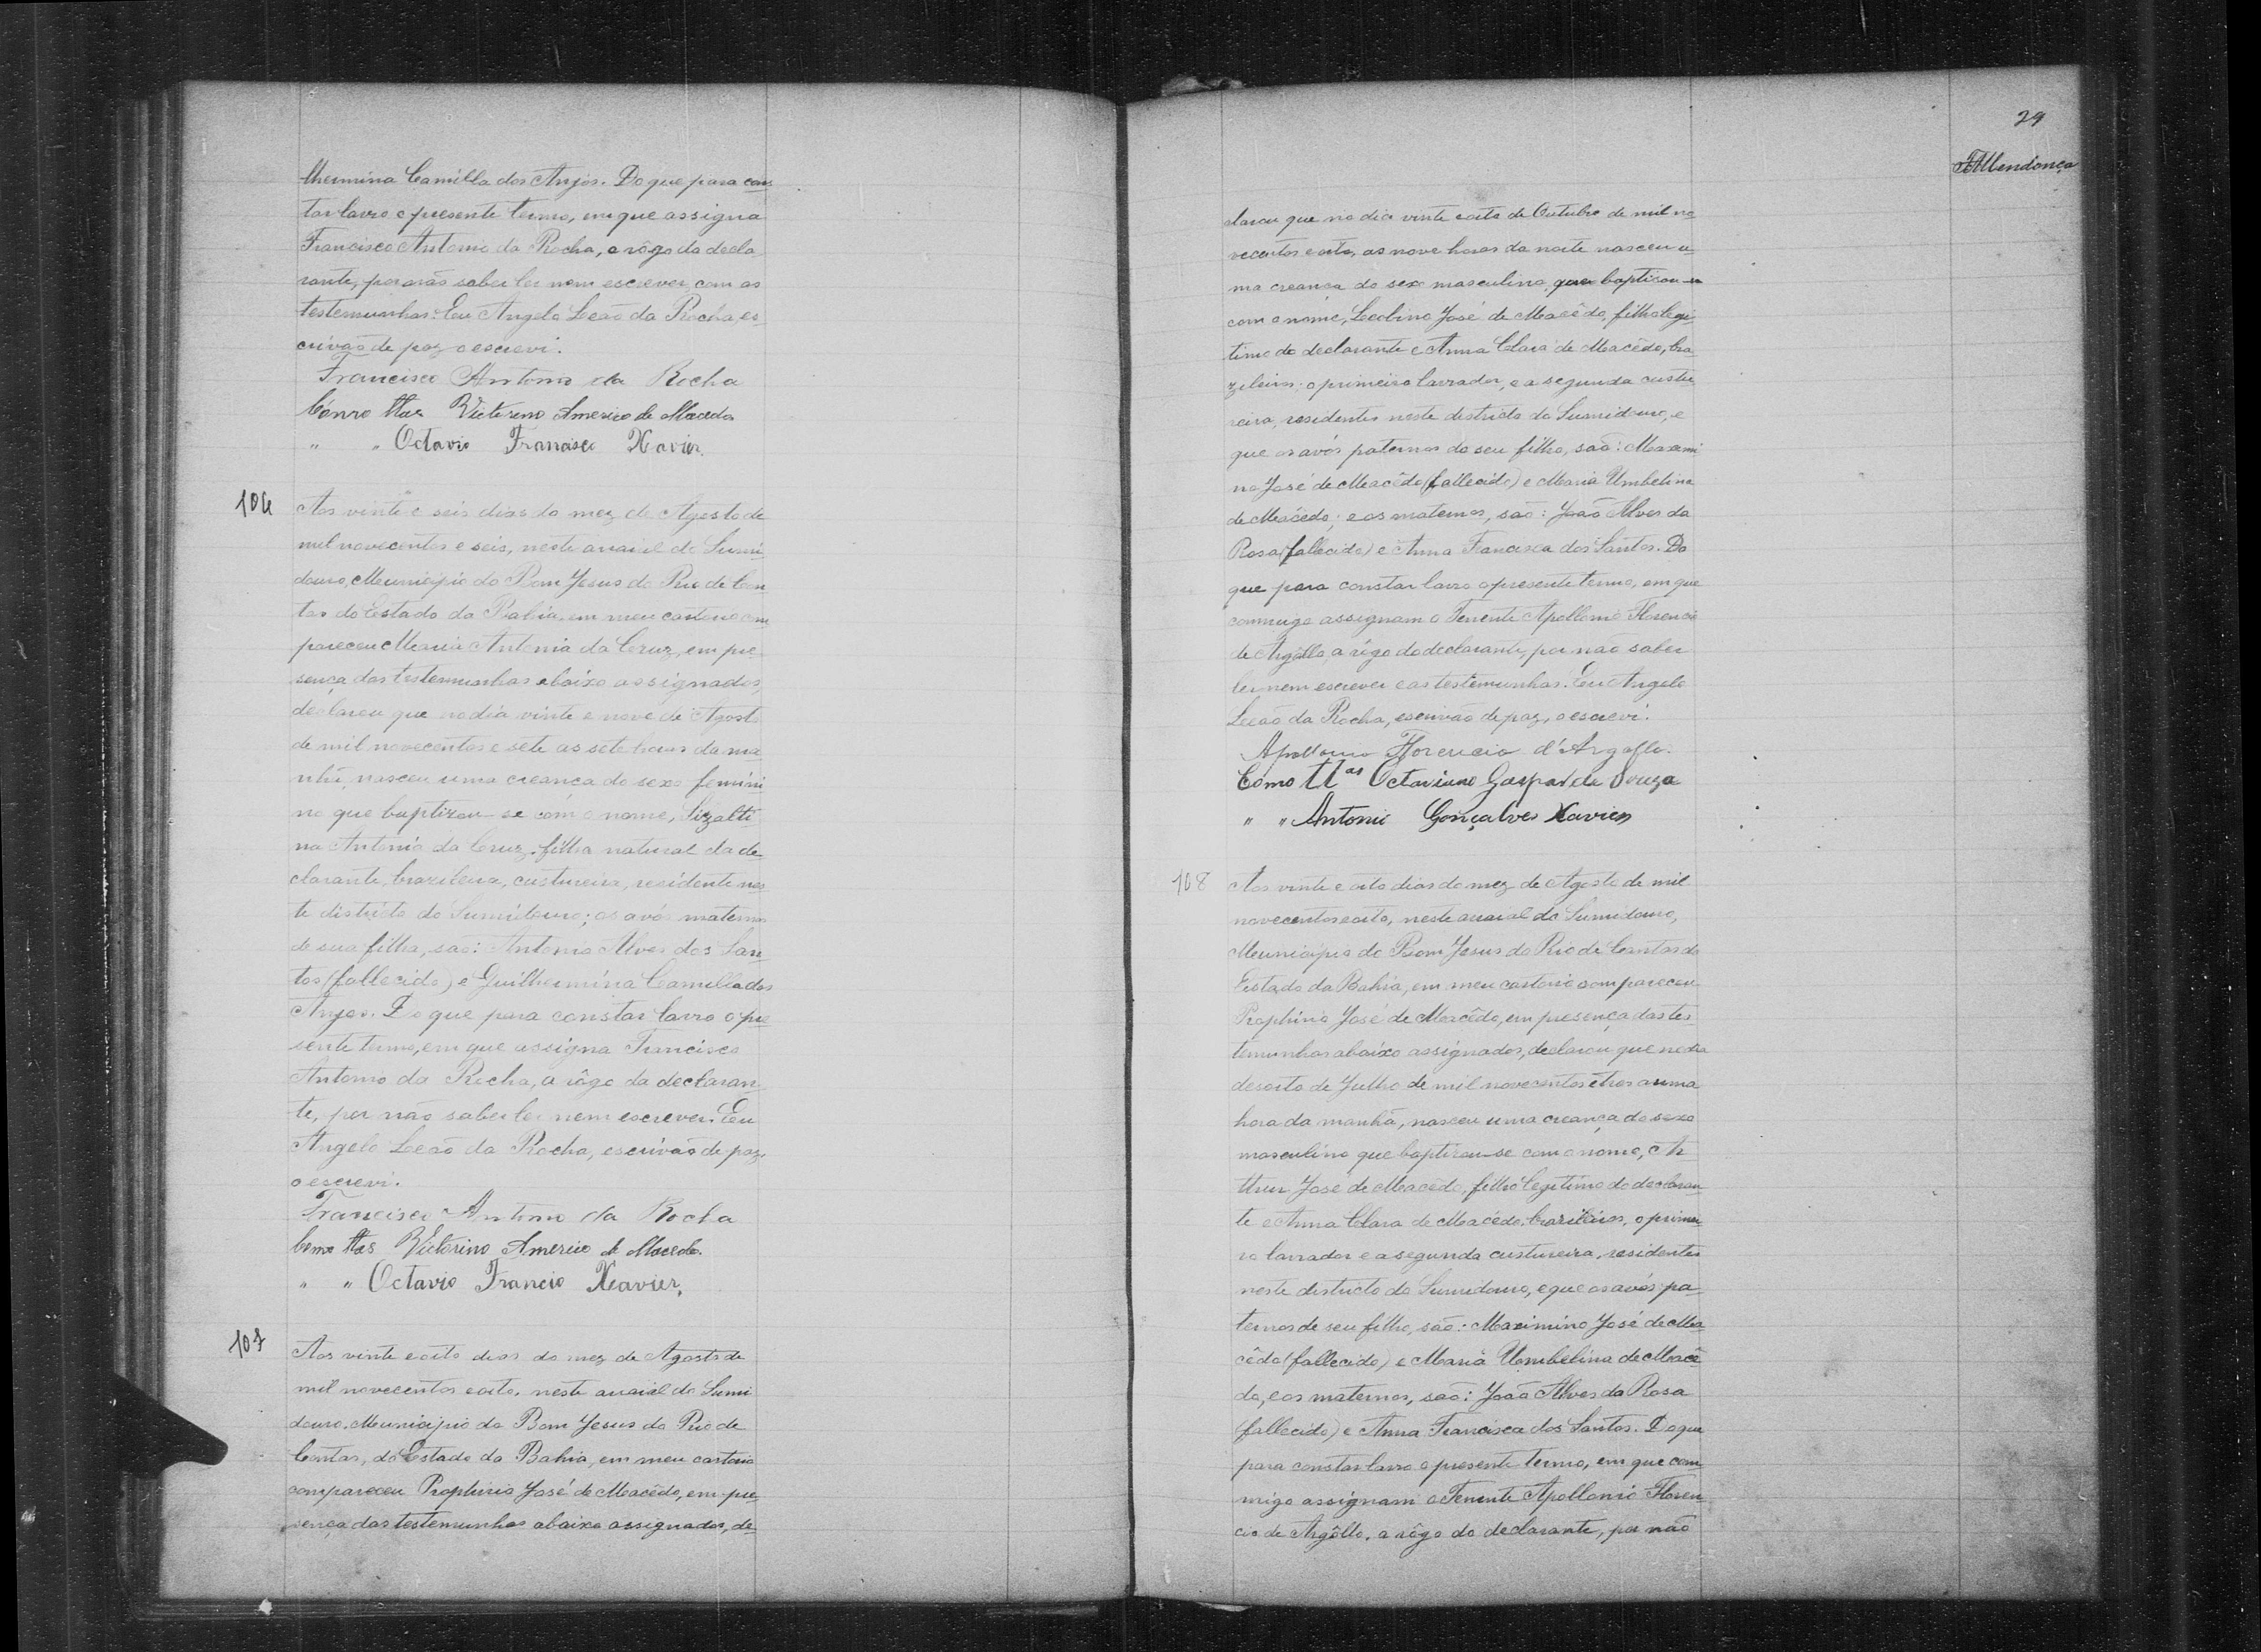 lhermina Camilla dos Anjos. Do que para cons
tar lavro o presente termo, em que assigna
Francisco Antonio da Rocha, a rôgo da decla
rante, por não saber ler nem escrever, com as
testemunhas. Eu Angelo Leão da Rocha, es-
crivão de paz o escrevi.
Francisco Antonio da Rocha
Como ttas Victorino Americo de Macedo
" " Octavio Francisco Xavier.
106
Aos vinte e seis dias do mez de Agosto de
mil novecentos e seis, neste arraial do Sumi
douro, Municipio do Bom Jesus do Rio de Con
tas do Estado da Bahia, em meu cartorio com
pareceu Maria Antonia da Cruz, em pre
sença das testemunhas abaixo assignados,
declarou que no dia vinte e nove de Agosto
de mil novecentos e sete as sete horas da ma
nhã, nasceu uma creança do sexo femini
no que baptizou-se com o nome, Sizalti
na Antonia da Cruz, filha natural da de
clarante, brazileira, custureira, residente nes
te districto do Sumidouro; os avós maternos
de sua filha, são: Antonio Alves dos San
tos (fallecido) e Guilhermina Camilla dos
Anjos. Do que para constar lavro o pre
sente termo, em que assigna Francisco
Antonio da Rocha, a rôgo da declaran
te, por não saber ler nem escrever. Eu
Angelo Leão da Rocha, escrivão de paz,
o escrevi.
Francisco Antonio da Rocha
Como ttas Victorino Americo de Macedo.
" " Octavio Francio Xavier,
107
Aos vinte e oito dias do mez de Agosto de
mil novecentos e oito, neste arraial do Sumi
douro, Municipio do Bom Jesus do Rio de
Contas, do Estado da Bahia, em meu cartorio
compareceu Prophirio José de Macêdo, em pre
sença das testemunhas abaixo assignados, de
29
Mendonça
clarou que no dia vinte e oito de Outubro de mil no
vecentos e oito, as nove horas da noite nasceu u
ma creança do sexo masculino, que baptisou-se
com o nome, Leolino José de Macêdo, filho legi
timo do declarante e Anna Clara de Macêdo, bra
zileiros: o primeiro lavrador, e a segunda custu
reira, residentes neste districto do Sumidouro, e
que os avós paternos do seu filho, são: Maximi
no José de Macêdo (fallecido) e Maria Umbelina
de Macêdo; e os maternos, são: João Alves da
Rosa (fallecido) e Anna Francisca dos Santos. Do
que para constar lavro o presente termo, em que
commigo assignam o Tenente Apollonio Florencio
de Argôllo, a rôgo do declarante, por não saber
ler nem escrever e as testemunhas. Eu Angelo
Leão da Rocha, escrivão de paz, o escrevi.
Apollonio Florencio d'Argollo.
Como ttas Octaviano Gaspar de Souza
" " Antonio Gonçalves Xavier
108
Aos vinte e oito dias do mez de Agosto de mil
novecentos e oito, neste arraial do Sumidouro,
Municipio do Bom Jesus do Rio de Contas do
Estado da Bahia, em meu cartorio compareceu
Prophirio José de Macêdo, em presença das tes
temunhas abaixo assignados, declarou que no dia
desoito de Julho de mil novecentos e tres a uma
hora da manhã, nasceu uma creança do sexo
masculino que baptizou-se com o nome, Ar
thur José de Macêdo, filho legitimo do declaran
te e Anna Clara de Macêdo, brazileiros, o primei
ro lavrador e a segunda custureira, residentes
neste districto do Sumidouro, e que os avós pa
ternos de seu filho, são: Maximino José de Ma
cêdo (fallecido) e Maria Umbelina de Macê
do, e os maternos, são: João Alves da Rosa
(fallecido) e Anna Francisca dos Santos. Do que
para constar lavro o presente termo, em que com
migo assignam o Tenente Apollonio Floren
cio de Argôllo, a rôgo do declarante, por não